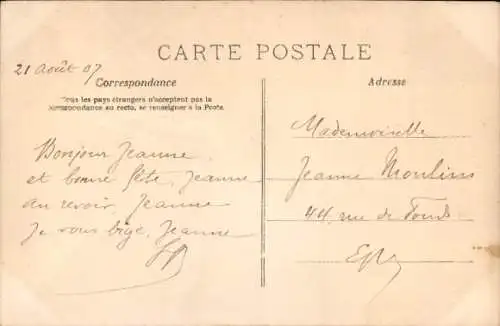 CARTE POSTALE
21 août 07
Correspondance
Tous les pays étrangers n'acceptent pas la
correspondance au recto, se renseigner à la Poste.
Bonjour Jeanne
et bonne fête, Jeanne
au revoir, Jeanne
Je vous bige, Jeanne
Adresse
Mademoiselle
Jeanne Moulins
44 rue de